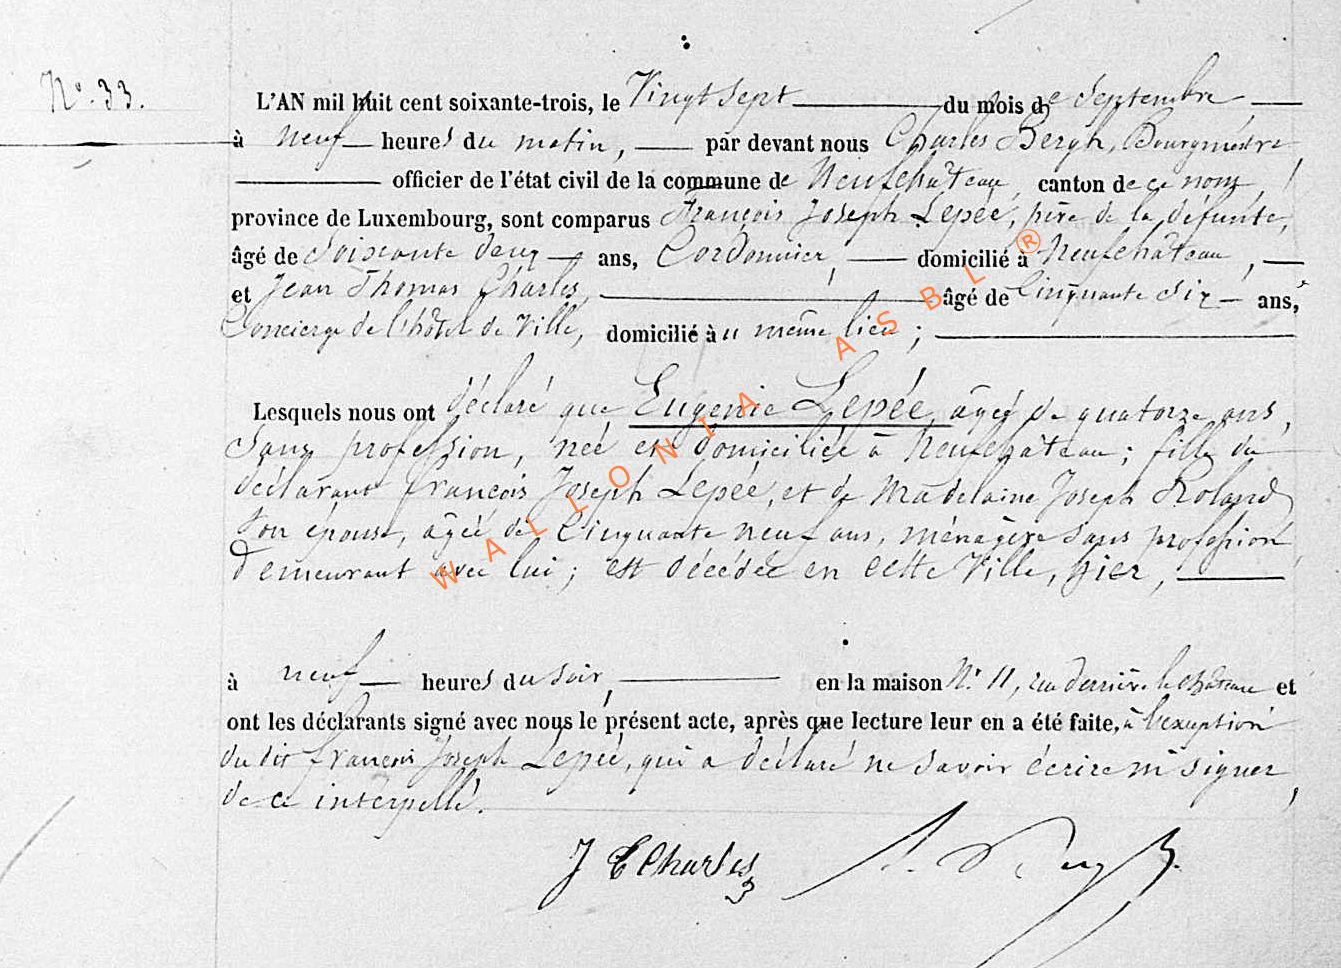 N°. 33.
L'AN mil huit cent soixante-trois, le Vingt Sept du mois de Septembre
à neuf heures du matin, par devant nous Charles Bergh, Bourgmestre
officier de l'état civil de la commune de Neufchâteau, canton de ce nom,
province de Luxembourg, sont comparus François Joseph Lepée, père de la défunte,
âgé de Soixante deux ans, Cordonnier, domicilié à Neufchâteau,
et Jean Thomas Charles, âgé de Cinquante Six ans,
Concierge de l'hôtel de Ville, domicilié au même lieu ;
Lesquels nous ont déclaré que Eugenie Lepée, âgée de quatorze ans,
Sans profession, née et domiciliée à Neufchâteau ; fille du
déclarant François Joseph Lepée, et de Madelaine Joseph Roland
Son épouse, âgée de Cinquante neuf ans, ménagère sans profession
demeurant avec lui ; est décédée en cette Ville, hier,
à neuf heures du soir, en la maison N° 11, rue derrière le château et
ont les déclarants signé avec nous le présent acte, après que lecture leur en a été faite, à l'exception
du dit François Joseph Lepée, qui a déclaré ne savoir écrire ni signer
de ce interpellé.
J T Charles
WALLONIA ASBL ®